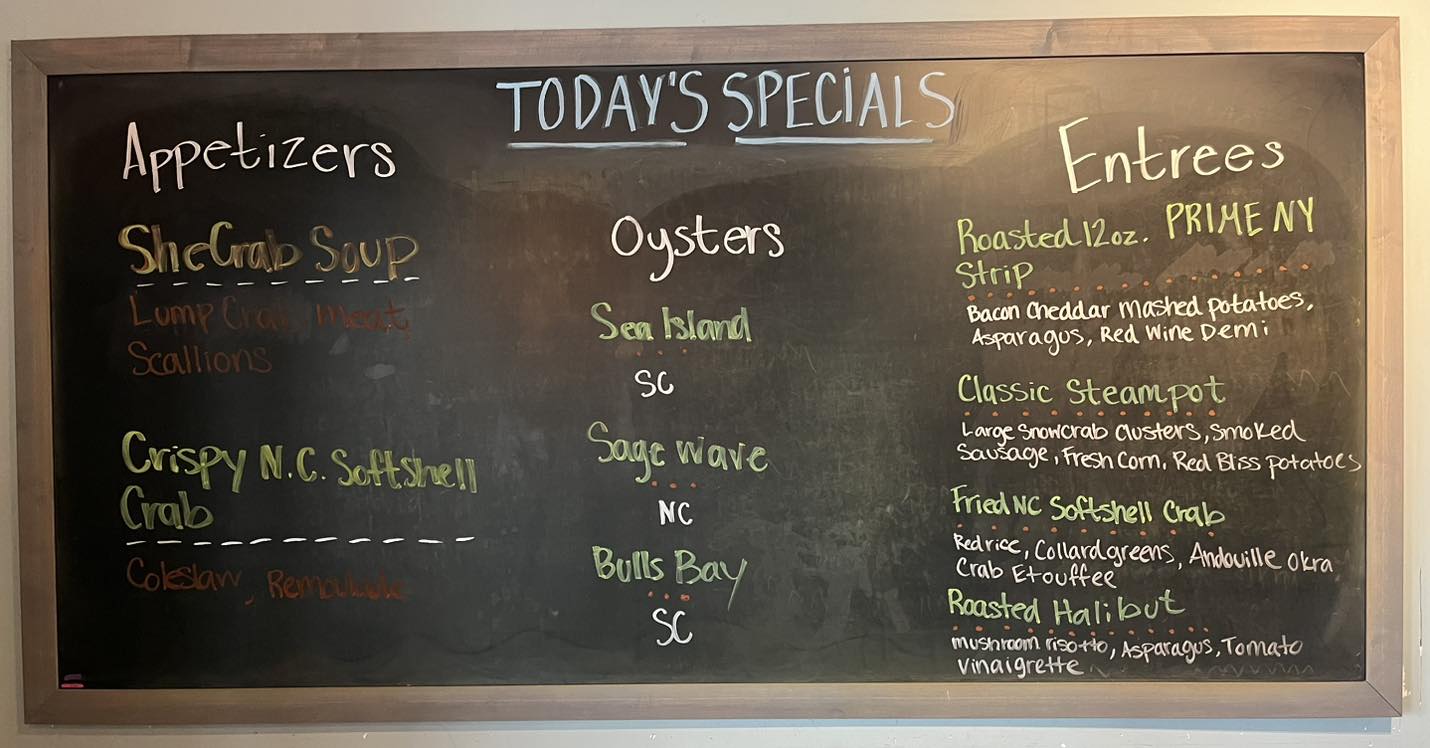 TODAY'S SPECIALS
Appetizers
SheCrab Soup
Lump Crab meat,
Scallions
Crispy N.C. Softshell
Crab
Coleslaw, Remoulade
Oysters
Sea Island
SC
Sage Wave
NC
Bulls Bay
SC
Entrees
Roasted 12oz. PRIME NY
Strip
Bacon Cheddar Mashed Potatoes,
Asparagus, Red Wine Demi
Classic Steampot
Large Snowcrab Clusters, Smoked
Sausage, Fresh Corn, Red Bliss potatoes
Fried NC Softshell Crab
Red rice, Collard greens, Andouille Okra
Crab Etouffee
Roasted Halibut
mushroom risotto, Asparagus, Tomato
vinaigrette